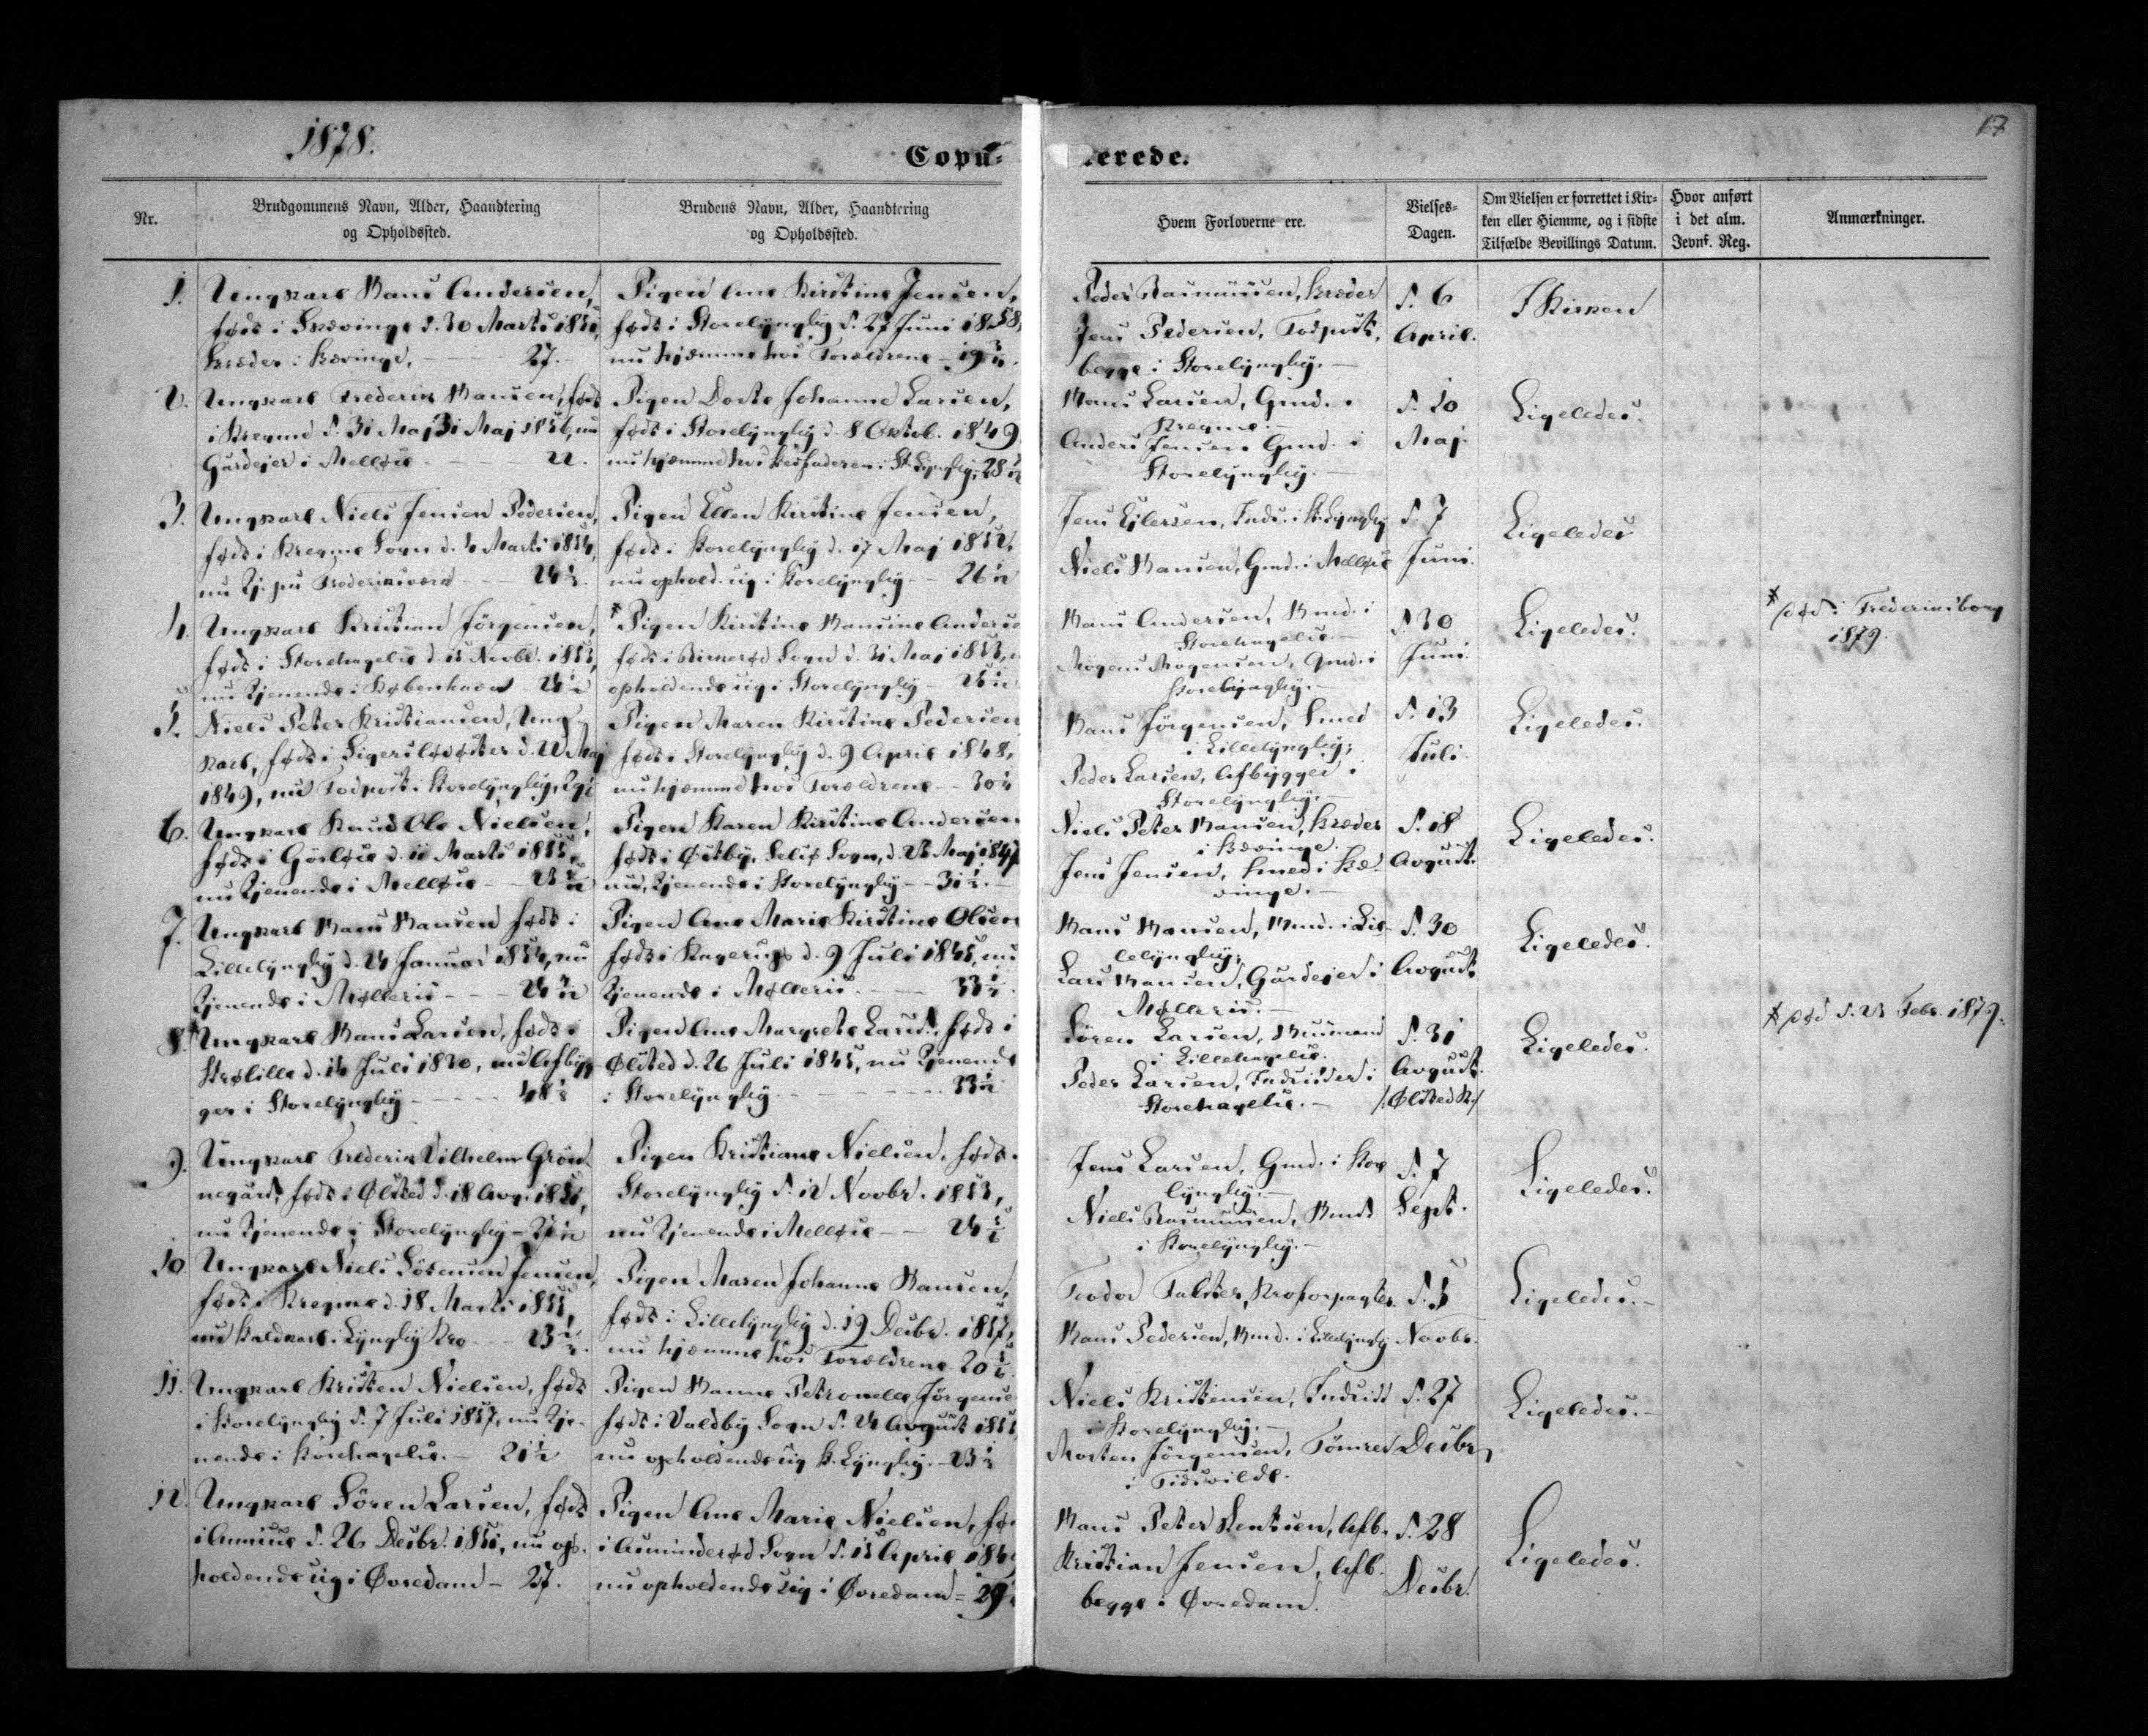 1878.
17
Copu=
lerede.
Nr.
Brudgommens Navn, Alder, Haandtering
og Opholdssted.
Brudens Navn, Alder, Haandtering
og Opholdssted.
Hvem Forloverne ere.
Vielses-
Dagen.
Om Vielsen er forrettet i Kir-
ken eller Hiemme, og i sidste
Tilfælde Bevillings Datum.
Hvor anført
i det alm.
Jevnf. Reg.
Anmærkninger.
1.
Ungkarl Hans Andersen,
født i Skævinge d. 30 Marts 1851,
Skræder i Skævinge, 27.
Pigen Ane Kirstine Jensen,
født i Storelyngby d. 27 Juni 1858,
nu hjemme hos Forældrene - 19
Peder Rasmussen, Skræder
Jens Pedersen, Fodpost,
begge i Storelyngby. -
d. 6
April.
I Kirken
2.
Ungkarl Frederik Hansen, født
i Kregme d. 31 Maj 31 Maj 1856, nu
Gårdejer i Melløse 22.
Pigen Dorte Johanne Larsen,
født i Storelyngby d. 8 Oktob. 1849
nu hjemme hos Stedfaderen i St. Lyngby, 28
Hans Larsen, Gmd. i
Kregme. -
Anders Jensen Gmd. i
Storelyngby. -
d. 10
Maj.
Ligeledes.
3.
Ungkarl Niels Jensen Pedersen,
født i Kregme Sogn d. 4 Marts 1854,
nu Tj. på Frederiksværk - 24
Pigen Ellen Kirstine Jensen,
født i Storelyngby d. 17 Maj 1852,
nu ophold. sig i Storelyngby - 26
Jens Ejlersen, Inds. i St. Lyngby
Niels Hansen, Gmd. i Melløse
d. 7
Juni.
Ligeledes
4.
Ungkarl Kristian Jörgensen,
født i Storehagelse d. 15 Novbr. 1853,
nu Tjenende i København 24
* Pigen Kirstine Hansine Anderse
født i Birkerød Sogn d. 31 Maj 1853,
opholdende sig i Storelyngby - 25
Hans Andersen, Hmd. i
Storehagelse. -
Mogens Mogensen, Gmd. i
Storelyngby. -
d. 30
Juni.
Ligeledes.
* død i Frederiksborg
1879.
5.
Niels Peter Kristiansen, Ung-
karl, født i Sigersløvøster d. 22 Maj
1849, nu Fodpost i Storelyngby, 29
Pigen Maren Kirstine Pedersen
født i Storelyngby d. 9 April 1848,
nu hjemme hos Forældrene - 30
Hans Jörgensen, Smed
i Lillelyngby;
Peder Larsen, Afbygger i
Storelyngby. -
d. 13
Juli.
Ligeledes.
6.
Ungkarl Knud Ole Nielsen,
født i Görløse d. 11 Marts 1855,
nu Tjenende i Melløse - 23
Pigen Karen Kirstine Andersen
født i Østby, Selsø Sogn, d. 25 Maj 1847
nu Tjenende i Storelyngby - 31
Niels Peter Hansen, Skræder
i Skævinge.
Jens Jensen, Smed i Skæ-
vinge. -
d. 18
Avgust.
Ligeledes.
7.
Ungkarl Hans Hansen født i
Lillelyngby d. 24 Januar 1854, nu
Tjenende i Mølleriis - 24
Pigen Ane Marie Kirstine Olsen
født i Kagerup d. 9 Juli 1845, nu
Tjenende i Mølleriis - 33
Hans Hansen, Hmd. i Lil-
lelyngby;
Lars Hansen, Gårdejer i
Mølleriis. -
d. 30
Avgust
Ligeledes.
8.
* Ungkarl Hans Larsen, født i
Strølille d. 14 Juli 1830, nu Afbyg-
ger i Storelyngby - 48
Pigen Ane Margrete Larsd., født i
Ølsted d. 26 Juli 1845, nu Tjenende
i Storelyngby - 33
Sören Larsen, Husmand
i Lillehagelse.
Peder Larsen, Indsidder i
Storehagelse. -
d. 31
Avgust.
/: Ølsted K :/
Ligeledes.
* død d. 25 Febr. 1879.
9.
Ungkarl Frederik Vilhelm Grön-
negård, født i Ølsted d. 18 Avg. 1851,
nu Tjenende i Storelyngby - 27
Pigen Kristiane Nielsen, født i
Storelyngby d. 12 Novbr. 1853,
nu Tjenende i Melløse - 24
Jens Larsen, Gmd. i Store
lyngby. -
Niels Rasmussen, Hmd
i Storelyngby. -
d. 7
Sept.
Ligeledes.
10.
Ungkarl Niels Sörensen Jensen,
født i Kregme d. 18 Marts 1855,
nu Staldkarl i Lyngby Kro - 23
Pigen Maren Johanne Hansen,
født i Lillelyngby d. 19 Decbr. 1857,
nu hjemme hos Forældrene 20
Teodor Falster, Kroforpagter.
Hans Pedersen, Hmd. i Lillelyngby
d. 5
Novbr.
Ligeledes. -
11.
Ungkarl Kristen Nielsen, født
i Storelyngby d. 7 Juli 1857, nu Tje-
nende i Storehagelse. - 21
Pigen Hanne Petronelle Jörgense
født i Valdby Sogn d. 24 Avgust 1855,
nu opholdende sig St. Lyngby. - 23
Niels Kristensen, Indsidd
i Storelyngby. -
Morten Jörgensen, Tömrer
i Tidsvilde.
d. 27
Decbr.
Ligeledes. -
12.
Ungkarl Sören Larsen, født
i Annisse d. 26 Decbr. 1851, nu op-
holdende sig i Øvredam - 27.
Pigen Ane Marie Nielsen, fø
i Asminderød Sogn d. 15 April 1849
nu opholdende sig i Øvredam = 29
Hans Peter Bentsen, Afb.
Kristian Jensen, Afb.
begge i Øvredam.
d. 28
Decbr.
Ligeledes.